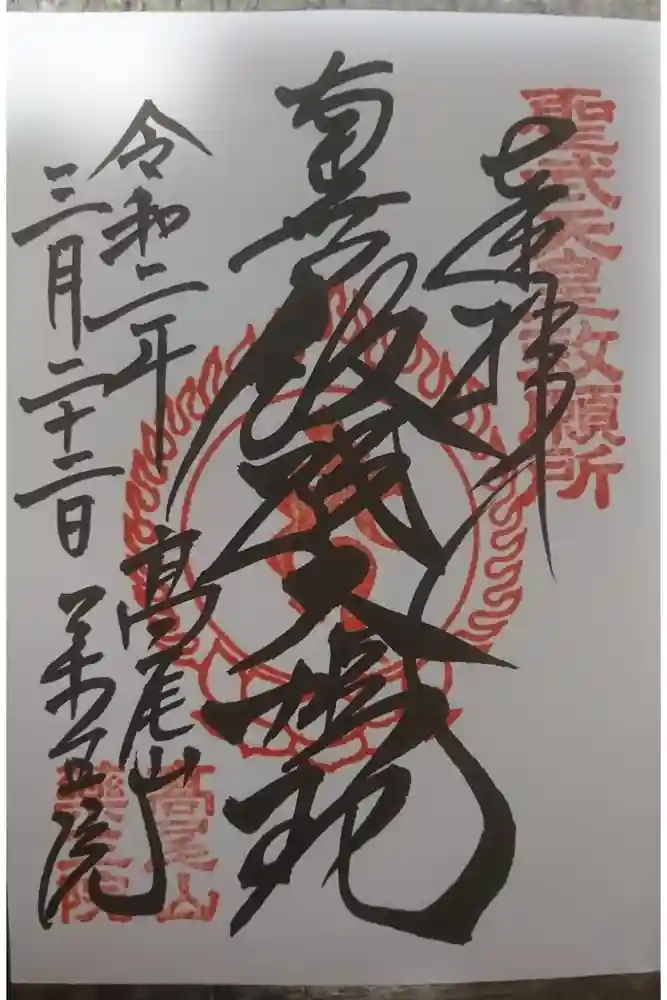 聖武天皇敕願所
奉拝
南無飯縄大権現
令和二年
三月二十二日
髙尾山
薬王院
髙尾山
藥王院